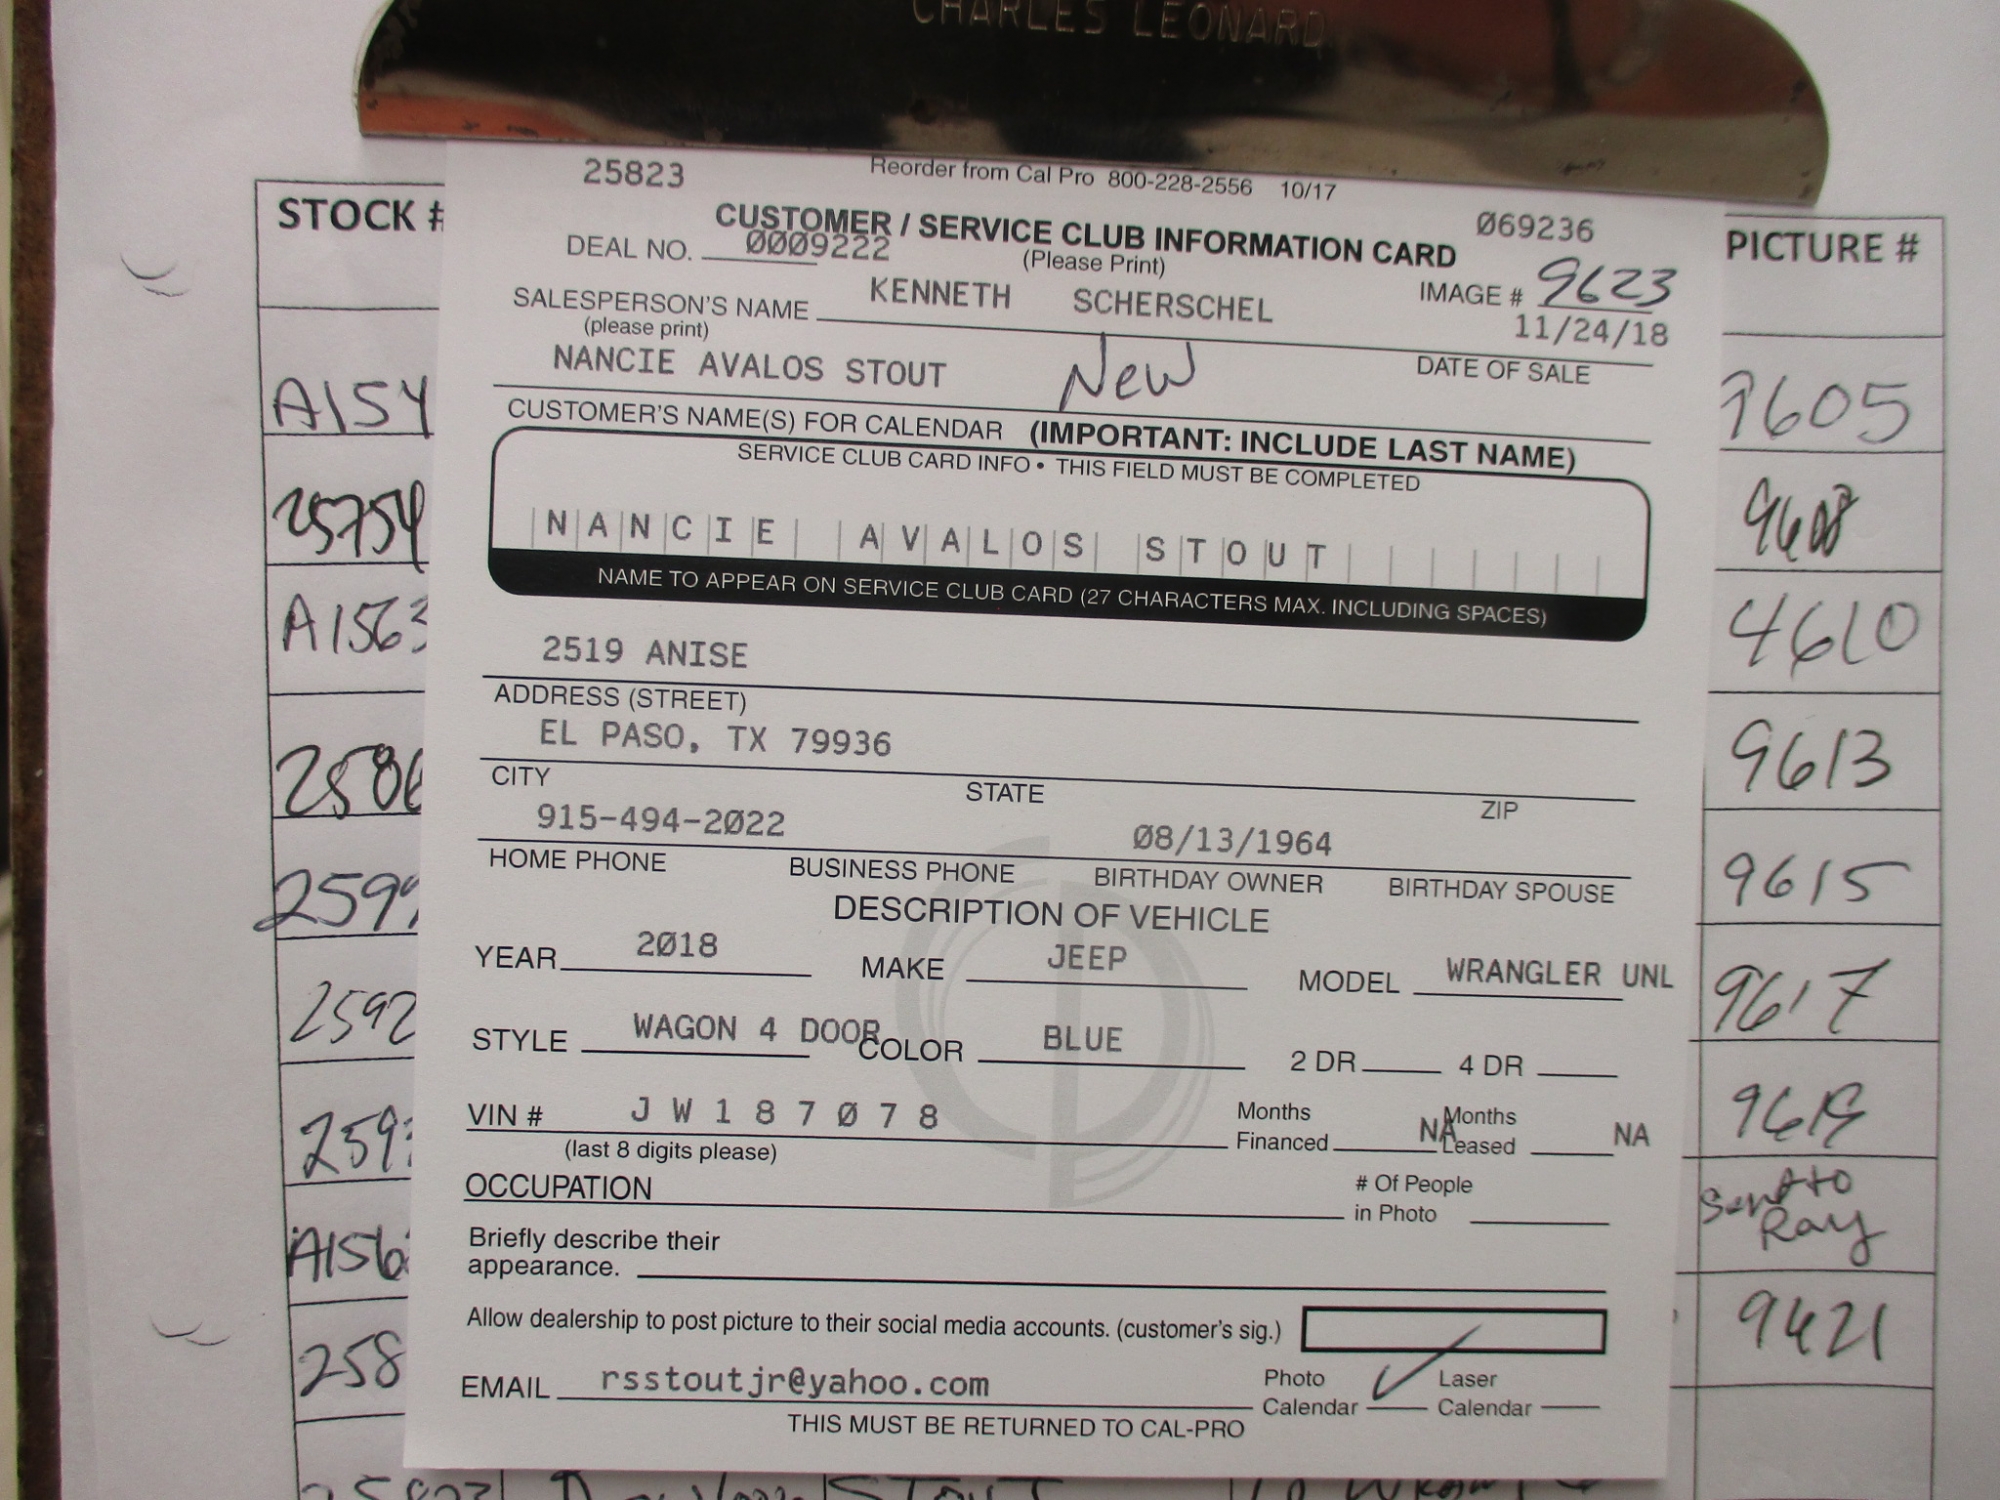 CHARLES LEONARD
25823 Reorder from Cal Pro 800-228-2556 10/17
CUSTOMER / SERVICE CLUB INFORMATION CARD Ø69236
DEAL NO. ØØØ9222 (Please Print)
SALESPERSON'S NAME KENNETH SCHERSCHEL IMAGE # 9623
(please print) 11/24/18
NANCIE AVALOS STOUT New DATE OF SALE
CUSTOMER'S NAME(S) FOR CALENDAR (IMPORTANT: INCLUDE LAST NAME)
SERVICE CLUB CARD INFO • THIS FIELD MUST BE COMPLETED
NANCIE AVALOS STOUT
NAME TO APPEAR ON SERVICE CLUB CARD (27 CHARACTERS MAX. INCLUDING SPACES)
2519 ANISE
ADDRESS (STREET)
EL PASO, TX 79936
CITY STATE ZIP
915-494-2Ø22 Ø8/13/1964
HOME PHONE BUSINESS PHONE BIRTHDAY OWNER BIRTHDAY SPOUSE
DESCRIPTION OF VEHICLE
YEAR 2Ø18 MAKE JEEP MODEL WRANGLER UNL
STYLE WAGON 4 DOOR COLOR BLUE 2 DR 4 DR
VIN # J W 1 8 7 Ø 7 8 Months Financed NA Months Leased NA
(last 8 digits please)
OCCUPATION # Of People in Photo
Briefly describe their
appearance.
Allow dealership to post picture to their social media accounts. (customer's sig.)
EMAIL rsstoutjr@yahoo.com Photo Calendar ✓ Laser Calendar
THIS MUST BE RETURNED TO CAL-PRO
STOCK #
A154
25754
A1563
2586
259
2592
259
A156
258
PICTURE #
9605
9608
4610
9613
9615
9617
9619
Sent to
Ray
9621
STOUT